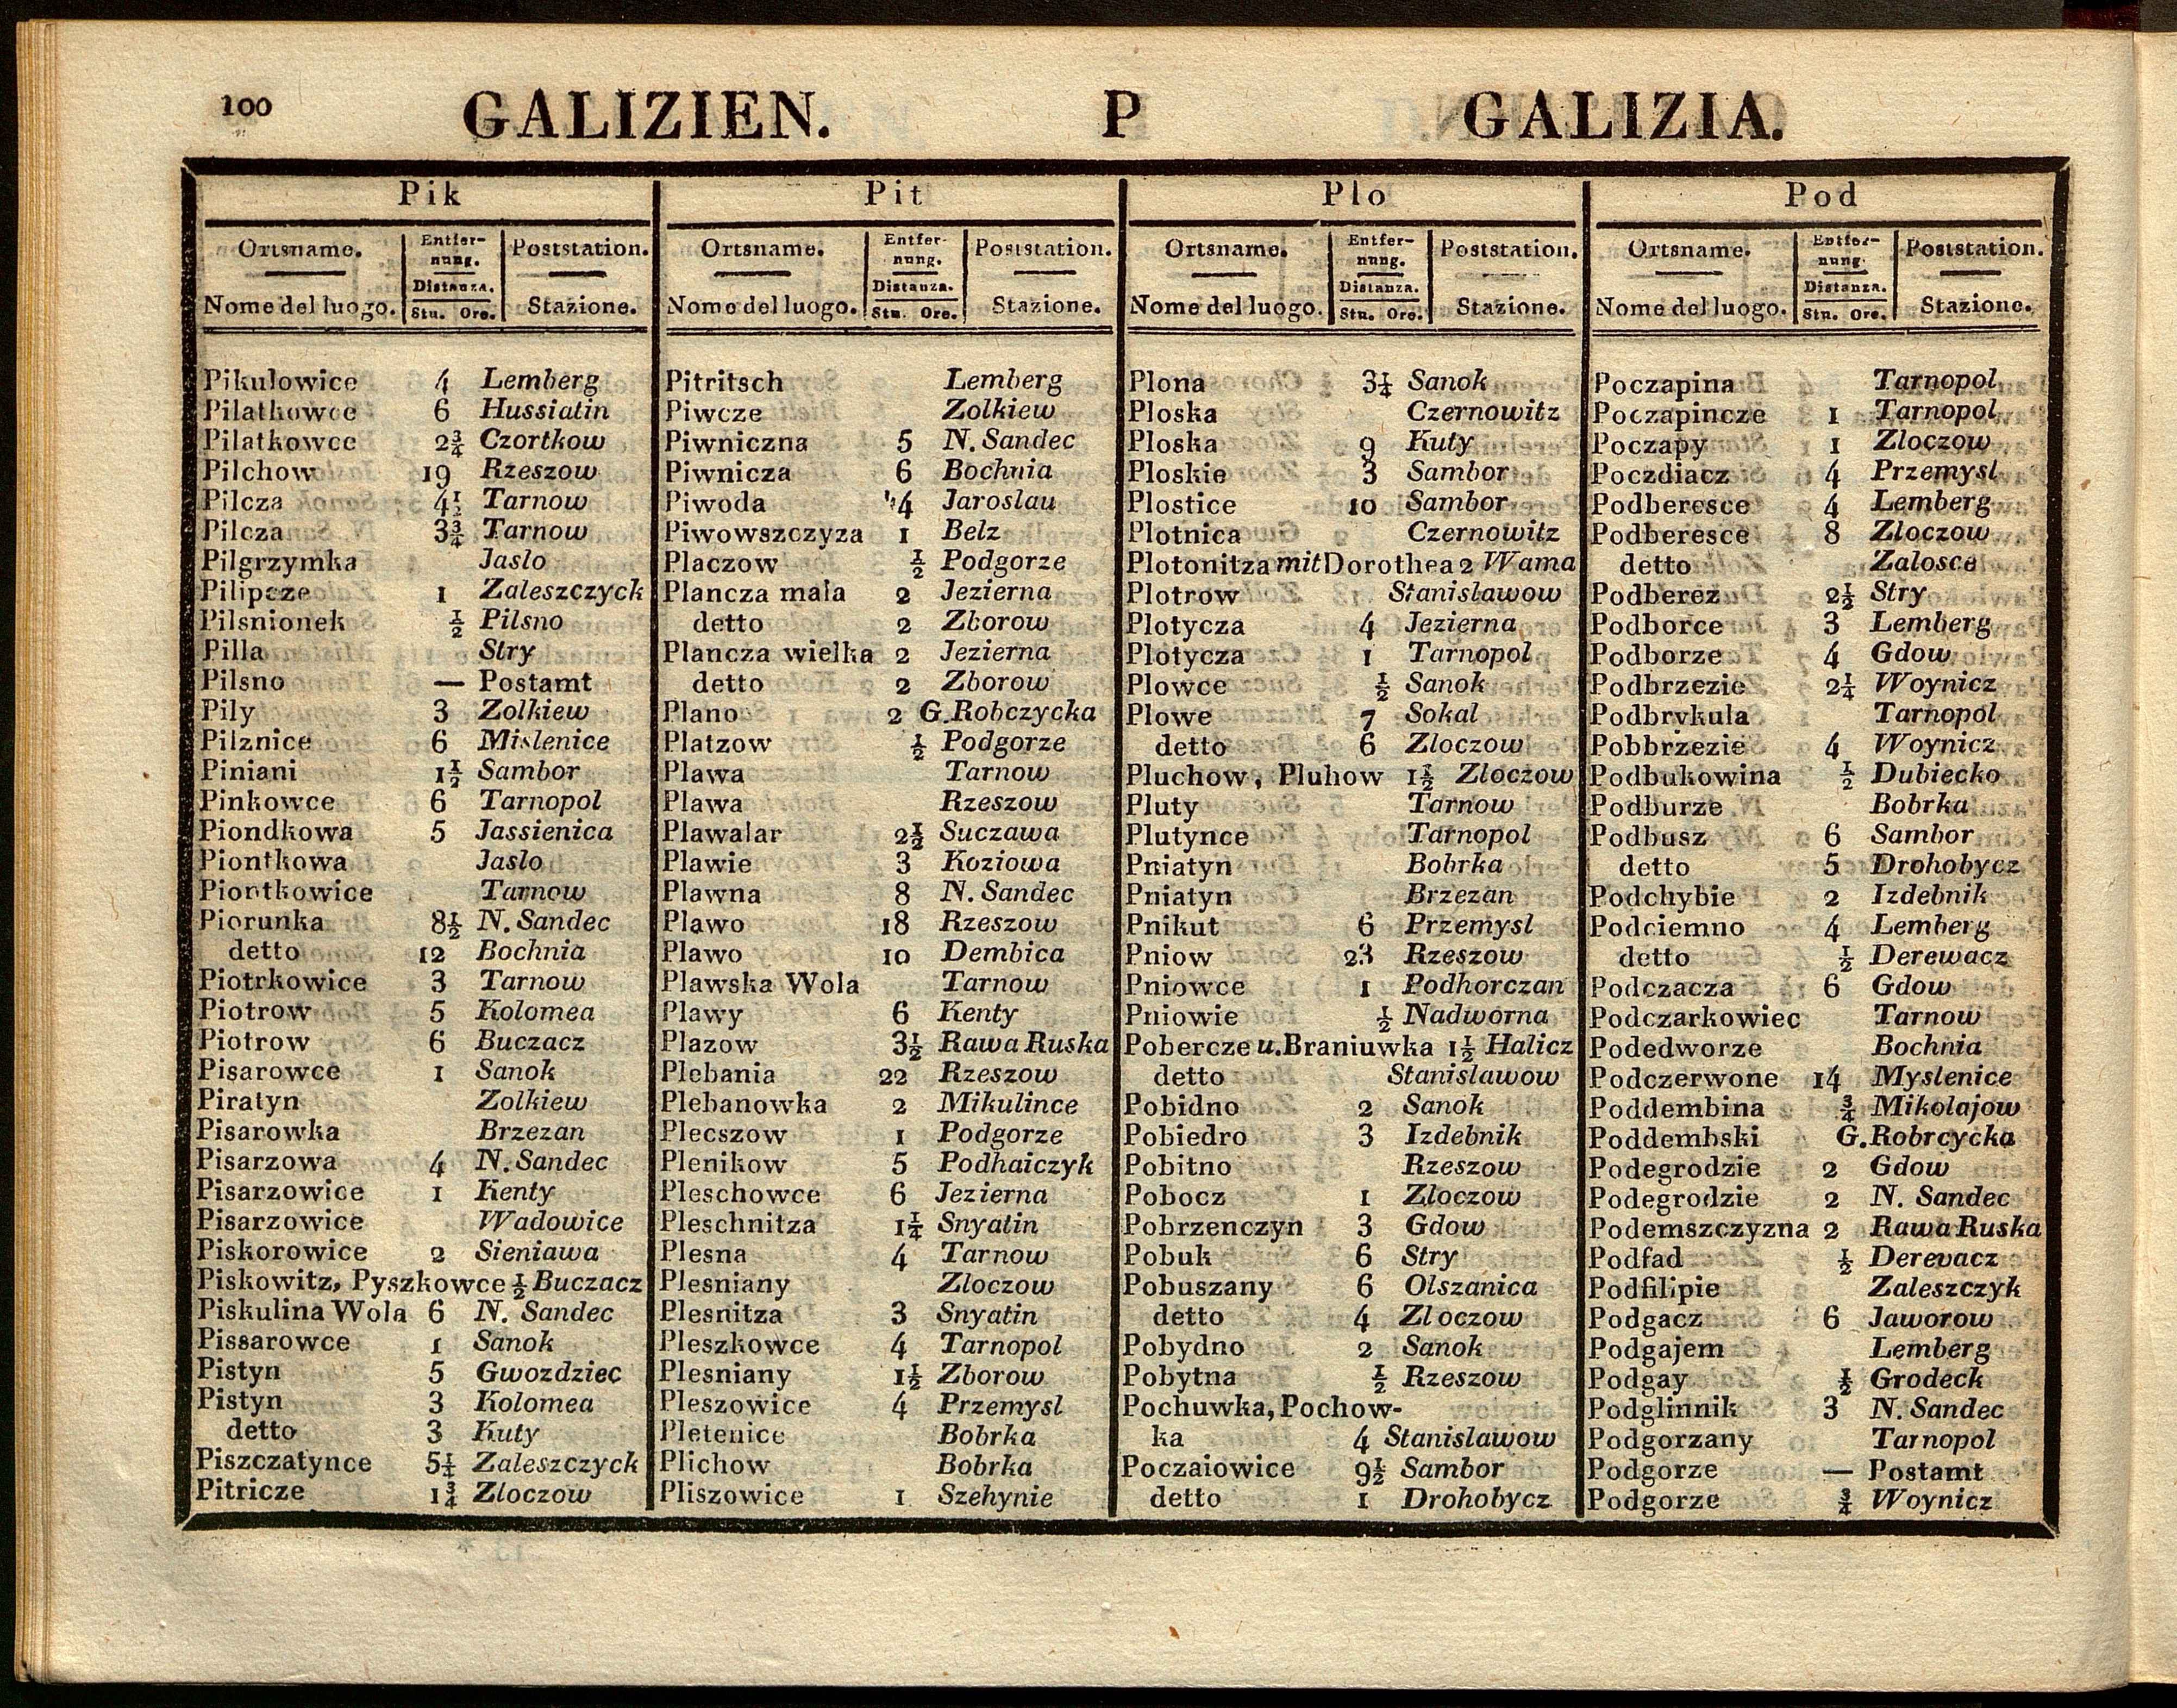 100 GALIZIEN. P GALIZIA.
Pik
Ortsname. Entfer- Poststation.
nung.
Distanza.
Nome del luogo. Stn. Ore. Stazione.
Pikulowice 4 Lemberg
Pilatkowce 6 Hussiatin
Pilatkowce 2¾ Czortkow
Pilchow 19 Rzeszow
Pilcza 4½ Tarnow
Pilcza 3¾ Tarnow
Pilgrzymka Jaslo
Pilipcze 1 Zaleszczyck
Pilsnionek ½ Pilsno
Pilla Stry
Pilsno — Postamt
Pily 3 Zolkiew
Pilznice 6 Mislenice
Piniani 1½ Sambor
Pinkowce 6 Tarnopol
Piondkowa 5 Jassienica
Piontkowa Jaslo
Piontkowice Tarnow
Piorunka 8½ N. Sandec
detto 12 Bochnia
Piotrkowice 3 Tarnow
Piotrow 5 Kolomea
Piotrow 6 Buczacz
Pisarowce 1 Sanok
Piratyn Zolkiew
Pisarowka Brzezan
Pisarzowa 4 N. Sandec
Pisarzowice 1 Kenty
Pisarzowice Wadowice
Piskorowice 2 Sieniawa
Piskowitz, Pyszkowce ½ Buczacz
Piskulina Wola 6 N. Sandec
Pissarowce 1 Sanok
Pistyn 5 Gwozdziec
Pistyn 3 Kolomea
detto 3 Kuty
Piszczatynce 5¼ Zaleszczyck
Pitricze 1¾ Zloczow
Pit
Ortsname. Entfer- Poststation.
nung.
Distanza.
Nome del luogo. Stn. Ore. Stazione.
Pitritsch Lemberg
Piwcze Zolkiew
Piwniczna 5 N. Sandec
Piwnicza 6 Bochnia
Piwoda 4 Jaroslau
Piwowszczyza 1 Belz
Placzow ½ Podgorze
Plancza mala 2 Jezierna
detto 2 Zborow
Plancza wielka 2 Jezierna
detto 2 Zborow
Plano 2 G. Robczycka
Platzow ½ Podgorze
Plawa Tarnow
Plawa Rzeszow
Plawalar 2½ Suczawa
Plawie 3 Koziowa
Plawna 8 N. Sandec
Plawo 18 Rzeszow
Plawo 10 Dembica
Plawska Wola Tarnow
Plawy 6 Kenty
Plazow 3½ Rawa Ruska
Plebania 22 Rzeszow
Plebanowka 2 Mikulince
Plecszow 1 Podgorze
Plenikow 5 Podhaiczyk
Pleschowce 6 Jezierna
Pleschnitza 1¼ Snyatin
Plesna 4 Tarnow
Plesniany Zloczow
Plesnitza 3 Snyatin
Pleszkowce 4 Tarnopol
Plesniany 1½ Zborow
Pleszowice 4 Przemysl
Pletenice Bobrka
Plichow Bobrka
Pliszowice 1 Szehynie
Plo
Ortsname. Entfer- Poststation.
nung.
Distanza.
Nome del luogo. Stn. Ore. Stazione.
Plona 3¼ Sanok
Ploska Czernowitz
Ploska 9 Kuty
Ploskie 3 Sambor
Plostice 10 Sambor
Plotnica Czernowitz
Plotonitza mit Dorothea 2 Wama
Plotrow Stanislawow
Plotycza 4 Jezierna
Plotycza 1 Tarnopol
Plowce ½ Sanok
Plowe 7 Sokal
detto 6 Zloczow
Pluchow, Pluhow 1½ Zloczow
Pluty Tarnow
Plutynce Tarnopol
Pniatyn Bobrka
Pniatyn Brzezan
Pnikut 6 Przemysl
Pniow 23 Rzeszow
Pniowce 1 Podhorczan
Pniowie ½ Nadworna
Pobercze u. Braniuwka 1½ Halicz
detto Stanislawow
Pobidno 2 Sanok
Pobiedro 3 Izdebnik
Pobitno Rzeszow
Pobocz 1 Zloczow
Pobrzenczyn 3 Gdow
Pobuk 6 Stry
Pobuszany 6 Olszanica
detto 4 Zloczow
Pobydno 2 Sanok
Pobytna ½ Rzeszow
Pochuwka, Pochow-
ka 4 Stanislawow
Poczaiowice 9½ Sambor
detto 1 Drohobycz
Pod
Ortsname. Entfer- Poststation.
nung.
Distanza.
Nome del luogo. Stn. Ore. Stazione.
Poczapina Tarnopol
Poczapincze 1 Tarnopol
Poczapy 1 Zloczow
Poczdiacz 4 Przemysl
Podberesce 4 Lemberg
Podberesce 8 Zloczow
detto Zalosce
Podberez 2½ Stry
Podborce 3 Lemberg
Podborze 4 Gdow
Podbrzezie 2¼ Woynicz
Podbrykula Tarnopol
Pobbrzezie 4 Woynicz
Podbukowina ½ Dubiecko
Podburze Bobrka
Podbusz 6 Sambor
detto 5 Drohobycz
Podchybie 2 Izdebnik
Podciemno 4 Lemberg
detto ½ Derewacz
Podczacza 6 Gdow
Podczarkowiec Tarnow
Podedworze Bochnia
Podczerwone 14 Myslenice
Poddembina ¾ Mikolajow
Poddembski G. Robrcycka
Podegrodzie 2 Gdow
Podegrodzie 2 N. Sandec
Podemszczyzna 2 Rawa Ruska
Podfad ½ Derevacz
Podfilipie Zaleszczyk
Podgacz 6 Jaworow
Podgajem Lemberg
Podgay ½ Grodeck
Podglinnik 3 N. Sandec
Podgorzany Tarnopol
Podgorze — Postamt
Podgorze ¾ Woynicz